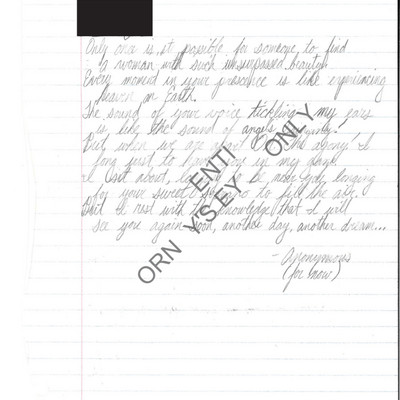 Only once is it possible for someone to find
a woman with such unsurpassed beauty.
Every moment in your presence is like experiencing
heaven on Earth.
The sound of your voice tickling my ears
is like the sound of angels
But, when we are apart the agony! I
long just to have you in my
I set about, to be near you, longing
for your sweet to fill the air.
But I rest with the knowledge that I will
see you again soon, another day, another dream...
- Anonymous
(for now)
ORN Y'S EY ENTI ONLY